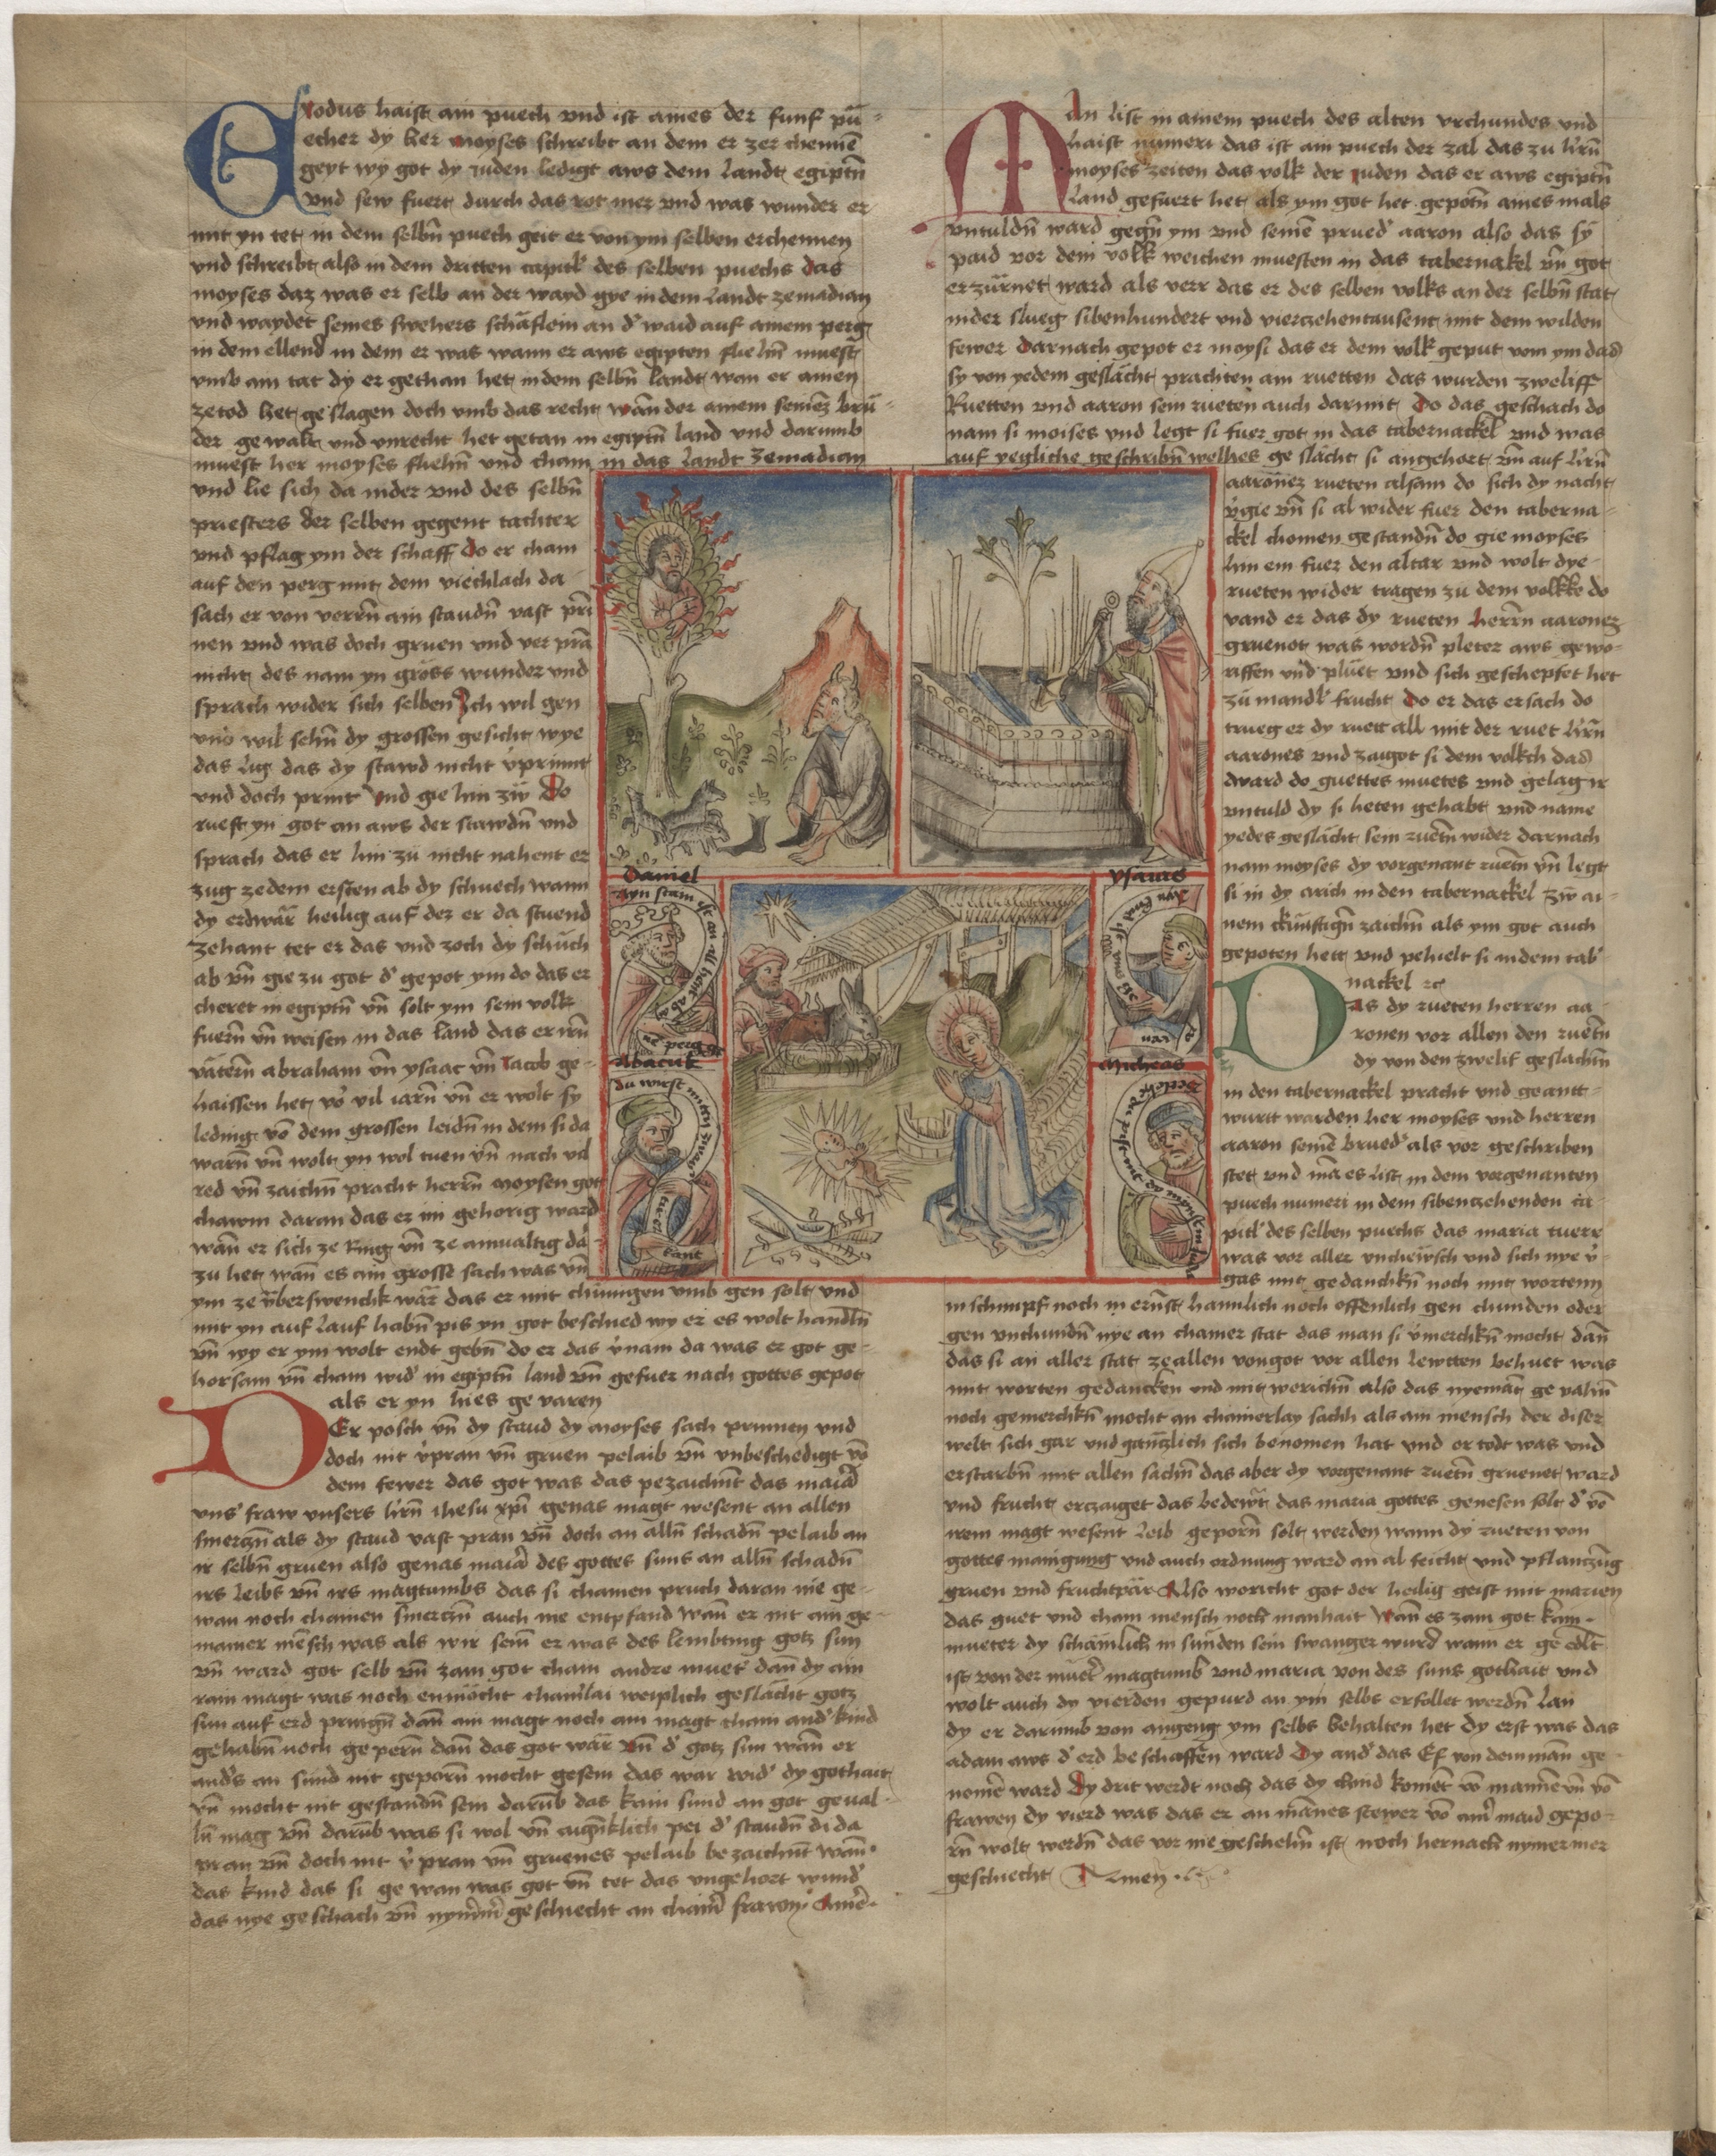 Exodus haist ain puech vnd ist aines der funf pu=
echer dy her moyses schreibt an dem er zer chennē
geyt wy got dy iuden ledigt aws dem landt egiptn̄
vnd sew fuert durch das rot mer vnd was wunder er
mit yn tet in dem selbn̄ puech geit er von ym selben erchennen
vnd schreibt also in dem dritten capitl des selben puechs das
moyses daz was er selb an der wayd gye in dem landt zemadian
vnd waydet seines swehers schäflein an d' waid auf ainem perg
in dem ellend in dem er was wann er aws egipten fliehn̄ muest
vmb ain tat dy er gethan het in dem selbn̄ landt wan er ainen
zetod het geslagen doch vmb das recht wān der ainem seinez brü=
der gewalt vnd vnrecht het getan in egiptn̄ land vnd darumb
muest her moyses fliehn̄ vnd cham in das landt zemadian
vnd lie sich da nider vnd des selbn̄
priesters der selben gegent tachter
vnd pflag ym der schaff do er cham
auf den perg mit dem viechlach da
sach er von verrn̄ ain staudn̄ vast prī
nen vnd was doch gruen vnd ver prā
nicht des nam yn gross wunder vnd
sprach wider sich selben Ich wil gen
vnd wil sehn̄ dy grossen gesicht wye
das lig das dy stawd nicht v'prinnt
vnd doch print vnd gie hin zw Do
rueft yn got an aws der stawdn̄ vnd
sprach das er hin zu nicht nahent er
zug zedem ersten ab dy schuech wann
dy erdwār heilig auf der er da stuend
zehant tet er das vnd zoch dy schuch
ab vn̄ gie zu got d' gepot ym do das er
cheret in egiptn̄ vn̄ solt ym sein volk
fuern̄ vn̄ weisen in das land das er irn̄
vätern̄ abraham vn̄ ysaac vn̄ Jacob ge=
haissen het vō vil iarn̄ vn̄ er wolt sy
leding vō dem grossen leidn̄ in dem si da
warn̄ vn̄ wolt yn wol tuen vn̄ nach vil
red vn̄ zaichn̄ pracht herrn̄ moysen got
chawm daran das er im gehorig ward
wān er sich ze ring vn̄ ze ainualtig da
zu het wān es ain grosse sach was vn̄
ym ze v̈berswenckh wār das er mit chunigen vmb gen solt vnd
mit yn auf lauf habn̄ pis yn got beschied wy er es wolt handln̄
vn̄ wy er ym wolt endt gebn̄ do er das v'nam da was er got ge=
horsam vn̄ cham wid' in egiptn̄ land vn̄ gefuer nach gottes gepot
als er yn hies ge varen
Der posch vn̄ dy staud dy moyses sach prinnen vnd
doch nit v'pran vn̄ gruen pelaib vn̄ vnbeschedigt vō
dem fewer das got was das pezaichn̄t das maiā
vns' fraw vnsers hrn̄ ihesu xp̄i genas magt wesent an allen
smerczn̄ als dy staud vast pran vn̄ doch an alln̄ schadn̄ pelaib an
ir selbn̄ gruen also genas maiā des gottes suns an alln̄ schadn̄
irs leibs vn̄ irs magtumbs das si chainen pruch daran nie ge=
wan noch chainen smerczn̄ auch nie entpfand wān er nit ain ge=
mainer mēsch was als wir sein er was des lembting gotz sun
vn̄ ward got selb vn̄ zam got cham andre muet' dan̄ dy ain
rain magt was noch enmöcht chainlai weiplich geslächt gotz
sun auf erd pringn̄ dan̄ ain magt noch ain magt cham and' kind
gehabn̄ noch gepern̄ dan̄ das got wār vn̄ d' gotz sun wān er
and's an sund nit geporn̄ mocht gesein das war wid' dy gothait
vn̄ mocht nit gestandn̄ sein darūb das kain sund an got geual=
ln̄ mag vn̄ darūb was si wol vn̄ aign̄klich pei d' staudn̄ di da
pran vn̄ doch nit v'pran vn̄ gruenes pelaib bezaichnt wān
das kind das si ge wan was got vn̄ tet das vngehort wund'
das nye geschach vn̄ nym̄ geschiecht an chain̄ frawn Amē
Man list in ainem puech des alten vrchundes vnd
haist numeri das ist ain puech der zal das zu hrn̄
moyses zeiten das volk der iuden das er aws egiptn̄
land gefuert het als ym got het gepotn̄ aines mals
vntuldn̄ ward gegn̄ ym vnd seinē prued' aaron also das sy
paid vor dem volk weichen muesten in das tabernakel vn̄ got
erzürnet ward als verr das er des selben volks an der selbn̄ stat
nider slueg sibenhundert vnd vierzehentausent mit dem wilden
fewer Darnach gepot er moysi das er dem volk geput vom ym das
sy von yedem geslächt prachten ain ruetten das wurden zweliff
Ruetten vnd aaron sein rueten auch darmit Do das geschach do
nam si moises vnd legt si fuer got in das tabernackel vnd was
auf yegliche geschribn̄ welhes ge slächt si angehort vn̄ auf hrn̄
aaronez rueten alsam do sich dy nacht
v'gie vn̄ si al wider fuer den taberna=
ckel chomen gestandn̄ do gie moyses
hin ein fuer den altar vnd wolt dye
rueten wider tragen zu dem volkke do
vand er das dy rueten herrn̄ aaronez
gruenot was wordn̄ pleter aws gewo=
rffen vnd pluet vnd sich geschepfet het
zu mandl frucht Do er das ersach do
trueg er dy ruett all mit der ruet hrn̄
aarones vnd zaigot si dem volkch das
dward do guettes muetes vnd gelag ir
vntuld dy si heten gehabt vnd name
yedes geslächt sein ruetn̄ wider darnach
nam moyses dy vorgenant ruetn̄ vn̄ legt
si in dy arch in den tabernackel zw ai=
nem chunftign̄ zaichn̄ als ym got auch
gepoten hett vnd pehielt si in dem tab'
nackel zc
Das dy rueten herren aa=
ronen vor allen den ruetn̄
dy von den zwelif geslächtn̄
in den tabernackel pracht vnd geantt=
wurtt warden her moyses vnd herren
aaron seinē brued' als vor geschriben
stet vnd mā es list in dem vorgenanten
puech numeri in dem sibenzehenden ca=
pitl' des selben puechs das maria tuere
was vor aller vncheẅsch vnd sich nye v'=
gas mit gedanchkn̄ noch mit worttenn
in schimpf noch in ernst haimlich noch offenlich gen chunden oder
gen vnchundn̄ nye an chainer stat das man si v'merchkn̄ mocht dan̄
das si an aller stat ze allen von got vor allen lewtten behuet was
mit worten gedancken vnd mit werichn̄ also das nyemāt ge valn̄
noch gemerchkn̄ mocht an chainerlay sachh als ain mensch der diser
welt sich gar vnd gänzlich sich benomen hat vnd er todt was vnd
erstarbn̄ mit allen sachn̄ das aber dy vorgenant ruetn̄ gruenet ward
vnd frucht erczaiget das bedewt das maria gottes genesen solt d' vō
irem magt wesent leib geporn̄ solt werden wann dy rueten von
gottes mainigung vnd auch ordnung ward an al feicht vnd pflantzūg
gruen vnd fruchtpār Also woricht got der heilig geist mit marien
das guet vnd cham mensch noch manhait wān es zam got kain
mueter dy schämlich in sunden sein swanger wurd wann er ge edlt
ist von der muet' magtumb vnd maria von des suns gothait vnd
wolt auch dy vierden gepurd an ym selbs erfollet werdn̄ lan
dy er darumb von angeng ym selbs behalten het dy erst was das
adam aws d' erd beschaffen ward Dy and' das Ef von dem man̄ ge
nomē ward Dy drit werdt noch das dy chind komēt vō mannē vn̄ vō
frawen dy vierd was das er an mānes stewer vō ain' maid gepo=
rn̄ wolt werdn̄ das vor nie geschehn̄ ist noch hernach nymermer
geschiecht Amen
Daniel
ayn stain ist an all hent ab
ne perg
ysaias
Abacuk
du wirst mittn zway
tieren
kant
Micheas